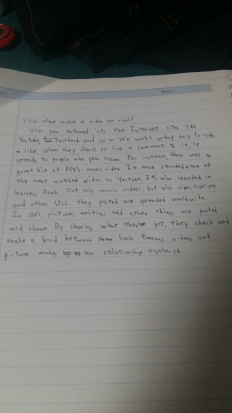 Title: What make a video go viral?
When you entered into the Internet site, like
Youtube, Facebook and so on. We watch what
a like. When they share or live a comment to it, it
spreads to people who you know. For instance, there was a
great hit of PSY's music video. It was recorded at
the most watched video on YouTube. It's also recorded in
Guinness Book. Not only music videos, but also
and other UCC they posted are spreaded worldwide.
In SNS, pictures, writing and other things are posted
and shared. By sharing what they yes, they check and
make a bond between them. Such videos and
pictures make our relationship tightened.